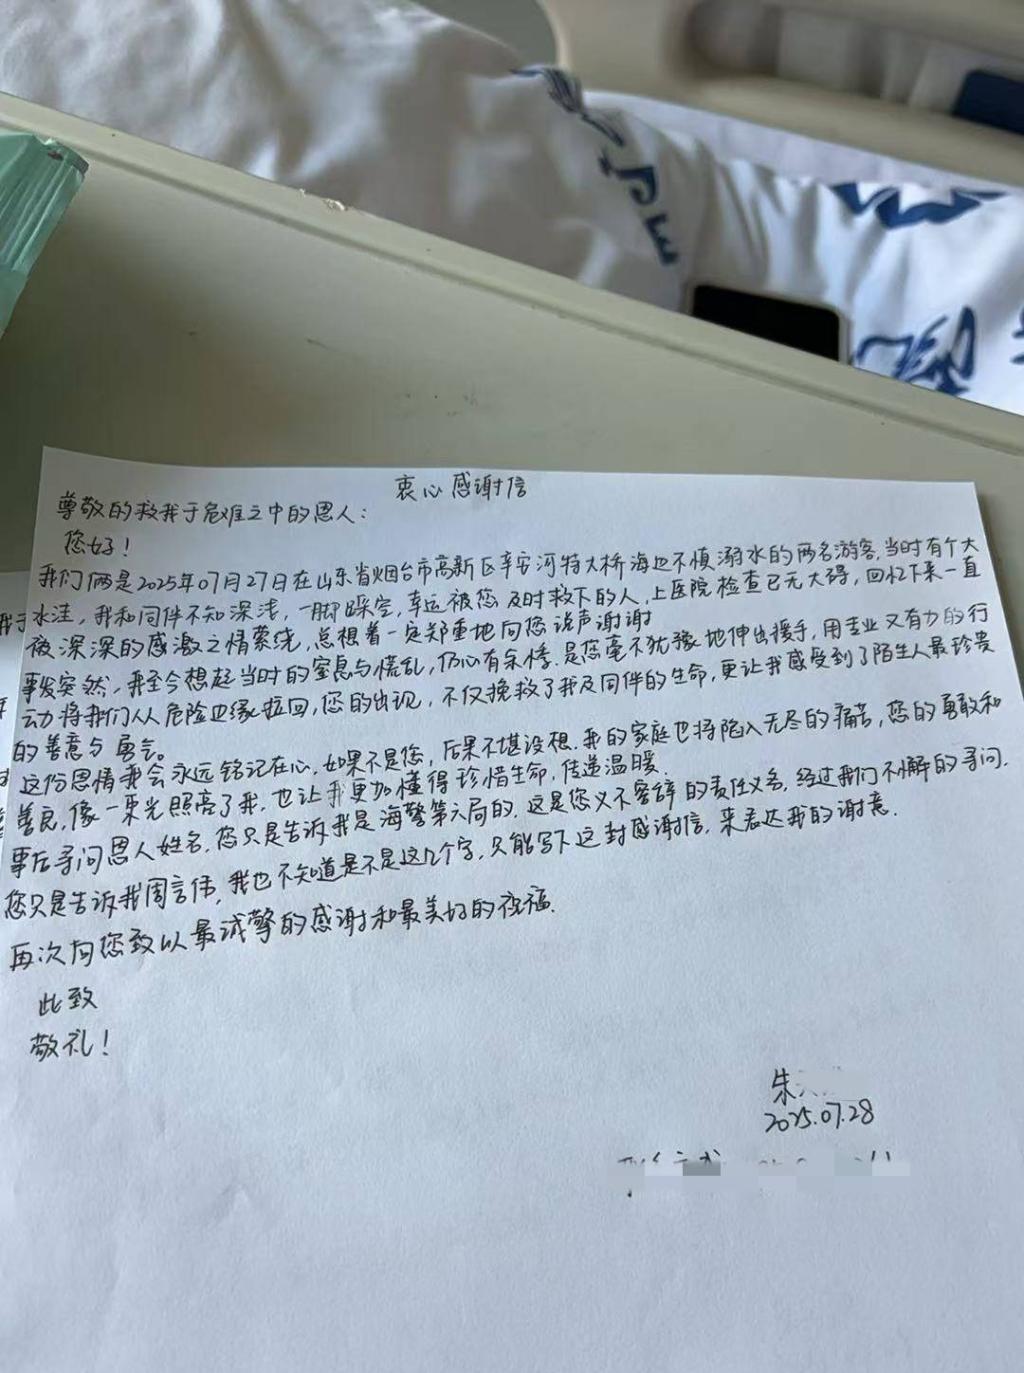 衷心感谢信
尊敬的救我于危难之中的恩人：
您好！
我们俩是2025年07月27日在山东省烟台市高新区辛安河特大桥海边不慎溺水的两名游客，当时有个大
水洼，我和同伴不知深浅，一脚踩空，幸运被您及时救下的人，上医院检查已无大碍，回忆下来一直
被深深的感激之情蒙绕，总想着一定郑重地向您说声谢谢
事发突然，我至今想起当时的窒息与慌乱，仍心有余悸.是您毫不犹豫地伸出援手，用专业又有力的行
动将我们从危险边缘拉回，您的出现，不仅挽救了我及同伴的生命，更让我感受到了陌生人最珍贵
的善意与勇气。
这份恩情我会永远铭记在心.如果不是您，后果不堪设想.我的家庭也将陷入无尽的痛苦，您的勇敢和
善良，像一束光照亮了我，也让我更加懂得珍惜生命，传递温暖.
事后寻问恩人姓名.您只是告诉我是海警第六局的.这是您义不容辞的责任义务，经过我们不懈的寻问.
您只是告诉我周言伟，我也不知道是不是这几个字，只能写下这封感谢信，来表达我的谢意.
再次向您致以最诚挚的感谢和最美好的祝福.
此致
敬礼！
朱
2025.07.28